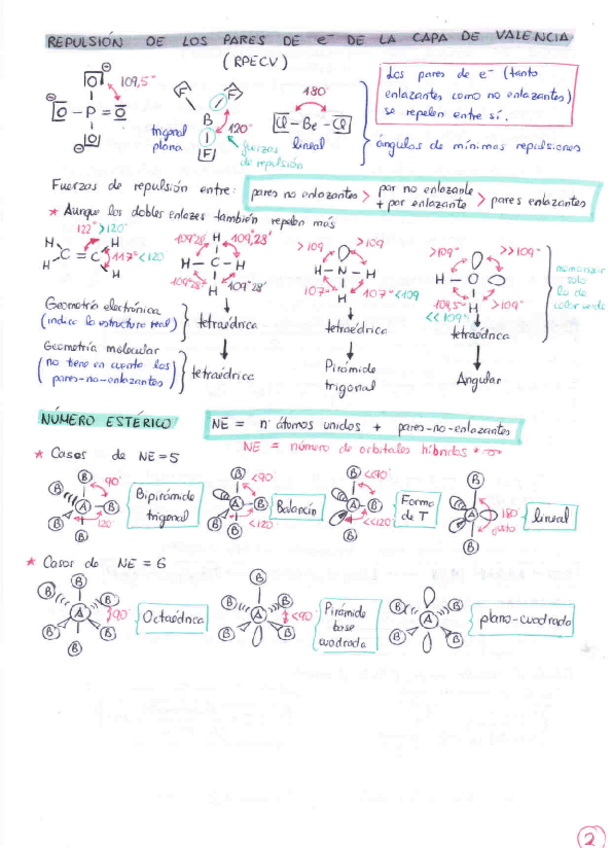 REPULSIÓN DE LOS PARES DE e- DE LA CAPA DE VALENCIA
(RPECV)
Los pares de e- (tanto
enlazantes como no enlazantes)
se repelen entre sí.
109,5°
O - P = O
O
O
F F
B
F
trigonal
plana
120°
fuerzas
de repulsión
180°
Cl - Be - Cl
lineal
ángulos de mínimas repulsiones
Fuerzas de repulsión entre:
pares no enlazantes > par no enlazante + par enlazante > pares enlazantes
* Aunque los dobles enlaces también repelen más
122° >120°
H H
C = C
H H
117° <120
109°28' 109°28'
H
H - C - H
H
109°28' 109°28'
>109 >109
H - N - H
H
107° 107° <109
>109° >>109°
H - O
H
104,5° >109°
<<109°
memorizar
solo
lo de
color verde
Geometría electrónica
(indica la estructura real)
tetraédrica
tetraédrica
tetraédrica
Geometría molecular
(no tiene en cuenta los
pares-no-enlazantes)
tetraédrica
Pirámide
trigonal
Angular
NÚMERO ESTÉRICO
NE = nº átomos unidos + pares-no-enlazantes
NE = número de orbitales híbridos
* Casos de NE=5
B B B A B B
90°
120°
Bipirámide
trigonal
B A B B B
<90°
<120
Balancín
B A B B
<<90°
<<120
Forma
de T
B A B
180°
justo
lineal
* Casos de NE = 6
B B B A B B B
90°
Octaédrica
B B B A B B
<90
Pirámide
base
cuadrada
B B A B B
plano-cuadrada
2